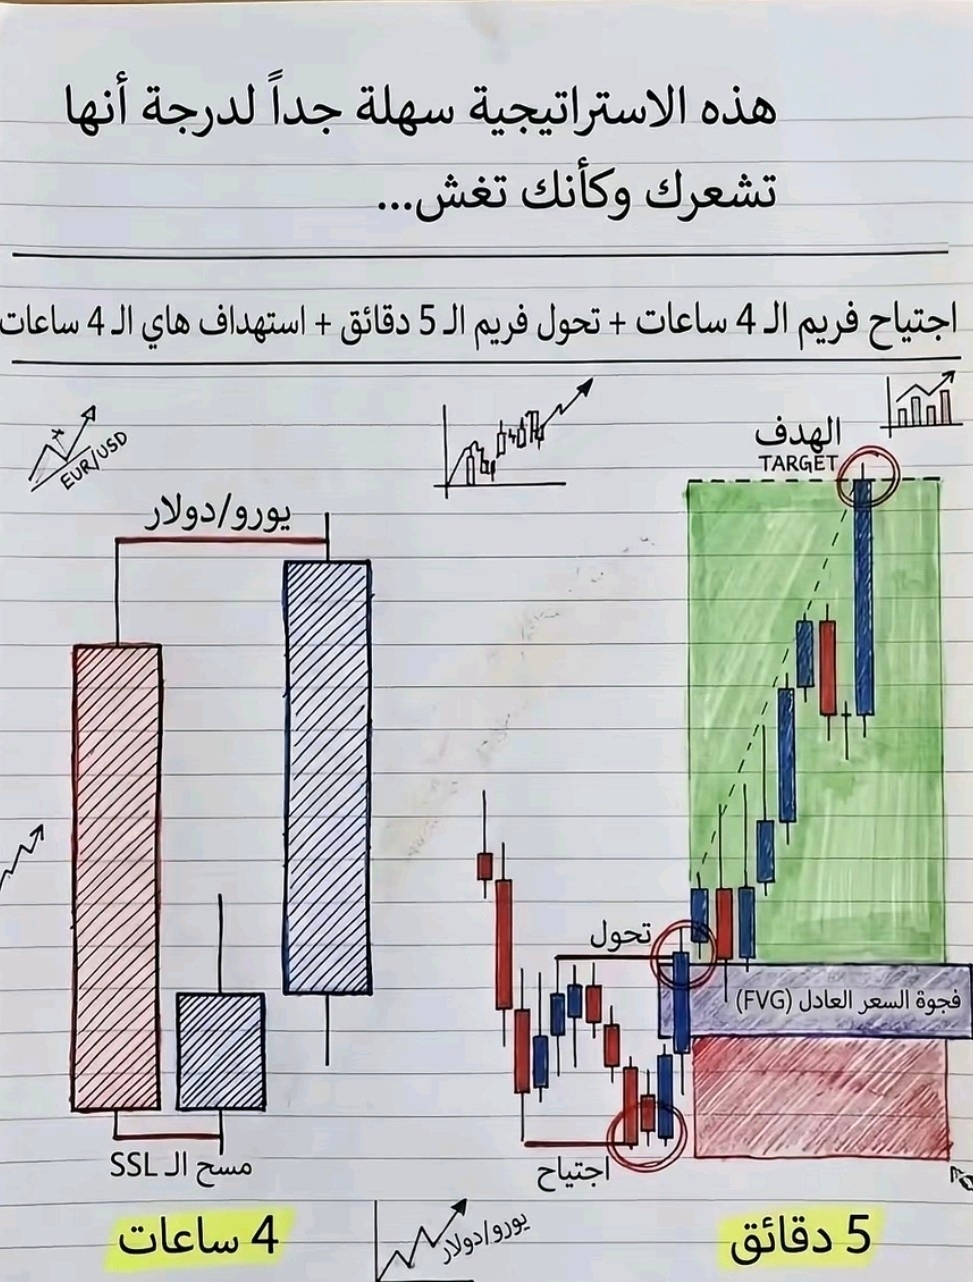 هذه الاستراتيجية سهلة جداً لدرجة أنها
تشعرك وكأنك تغش...
اجتياح فريم الـ 4 ساعات + تحول فريم الـ 5 دقائق + استهداف هاي الـ 4 ساعات
EUR/USD
الهدف
TARGET
يورو/دولار
تحول
فجوة السعر العادل (FVG)
اجتياح
مسح الـ SSL
4 ساعات
يورو/دولار
5 دقائق